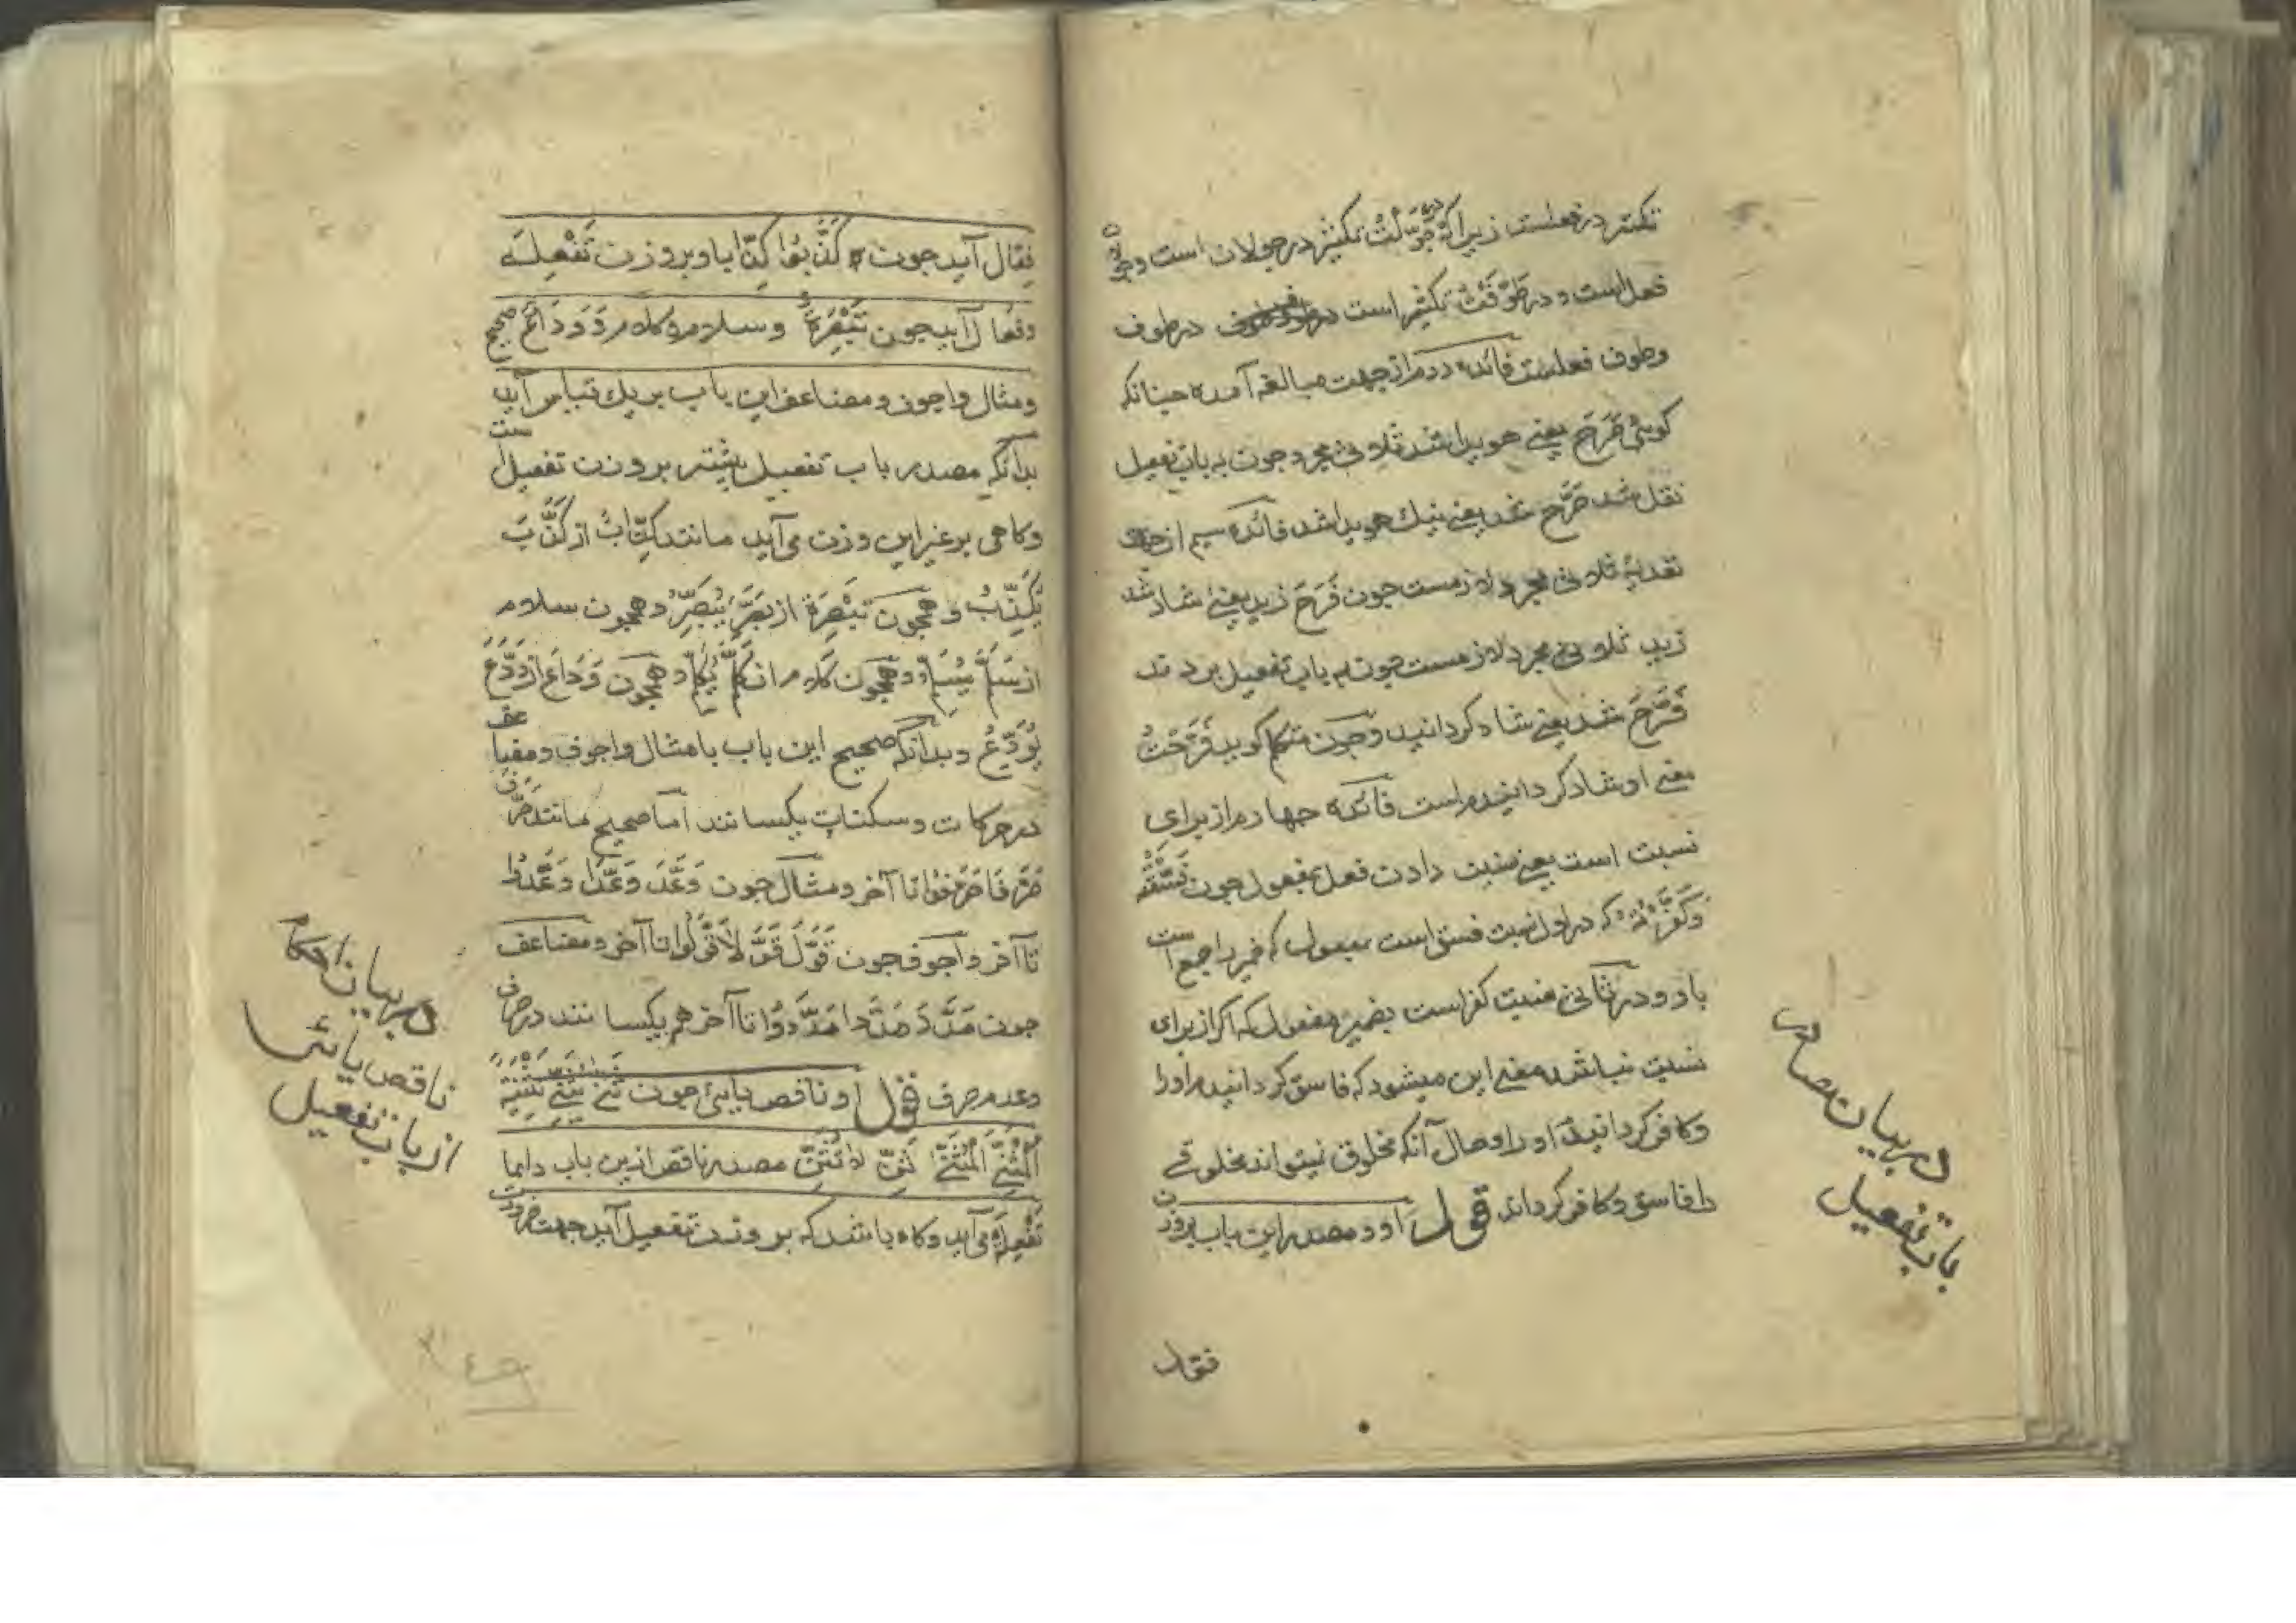 تکثیر در فعلست زیرا که در جَوَّلْتُ تکثیر در جولان است و جولان
فعل است و در طَوَّفْتُ تکثیر است در طوف
وطوف فعلست فائده دوم از جهت مبالغه آمده چنانکه
کویی صَرَحَ یعنی هویدا شد ثلاثی مجرد چون به باب تفعیل
نقل شد صَرَّحَ شد یعنی نیك هویدا شد فائده سیم از جهت
تعدیه ثلاثی مجرد لازمست چون فَرَحَ زید یعنی شاد شد
زید ثلاثی مجرد لازمست چون به باب تفعیل بردند
فَرَّحَ شد یعنی شاد کردانید و چون متکلم کوید فَرَّحْتُ
یعنی او شاد کردانیدم است فائده چهارم از برای
نسبت است یعنی نسبت دادن فعل بمفعول چون فَسَّقْتُهُ
وَکَفَّرْتُهُ که در اول نسبت فسق است بمفعول که ضمیر راجع است
باو و در ثانی نسبت کفر است بضمیر مفعول که اکر از برای
نسبت نباشد معنی این میشود که فاسق کردانیدم او را
وکافر کردانیدم او را و حال آنکه مخلوق نمیتواند مخلوقی
را فاسق و کافر کرداند قوله او و مصدر این باب بروزن
فعال
در بیان مصادر
باب تفعیل
فِعّال آید چون کَذَّبُوا کِذّابا و بر وزن تَفْعِلَه
وفعال آید چون تَبْصِرَةً و سلام و کلام و وَدَاع صحیح
ومثال واجوف ومضاعف این باب بریك قیاس آید
بدانکه مصدر باب تفعیل بیشتر بر وزن تفعیل است
وکاهی بر غیر این وزن می آید مانند کِذّابُ از کَذَّبَ
یُکَذِّبُ و همچون تَبْصِرَة از بَصَّرَ یُبَصِّرُ و همچون سلام
از سَلَّمَ یُسَلِّمُ و همچون کلام از کَلَّمَ یُکَلِّمُ و همچون وَدَاع از وَدَّعَ
یُوَدِّعُ و بدانکه صحیح این باب با مثال واجوف ومضاعف
در حرکات و سکنات یکسانند اما صحیح مانند صَرَّفَ
صَرَّفَا صَرَّفُوا تا آخر ومثال چون وَعَّدَ وَعَّدَا وَعَّدُوا
تا آخر واجوف چون قَوَّلَ قَوَّلَا قَوَّلُوا تا آخر ومضاعف
چون مَدَّدَ مَدَّدَا مَدَّدُوا تا آخر هم یکسانند در صرف
وعدم صرف قوله او ناقص یایی چون ثَنّی یُثَنِّی تَثْنِیَةً
اَلْمُثَنِّی اَلْمُثَنَّی ثَنِّ لا تُثَنِّ مصدر ناقص ازین باب دایما
تَفْعِلَة می آید و کاه باشد که بر وزن تفعیل آید جهت ضرورت
در بیان احکام
ناقص یائی
از باب تفعیل